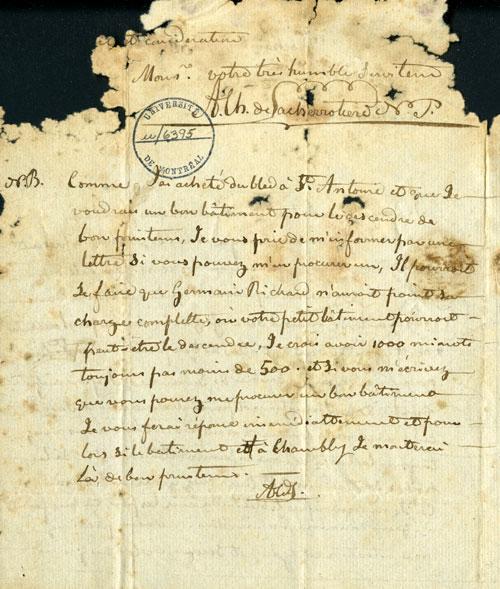 et consideration
Monsr. votre très humble Serviteur
A. Ch. de Lacherrotiere N.P.
UNIVERSITÉ
u/6395
DE MONTRÉAL
N.B. Comme J'ai acheté du bled à St. Antoine et que Je
voudrais un bon bâtiment pour le descendre de
bon printems, Je vous prie de m'informer par une
lettre Si vous pouvez m'en procurer un, Il pourroit
Se faire que Germain Richard n'auroit point Sa
charge complette, ou votre petit bâtiment pourroit
peut-être le descendre, Je crois avoir 1000 minots
toujours pas moins de 500. et Si vous m'écrivez
que vous pouvez me procurer un bon bâtiment
Je vous ferai réponse immediattement et pour
lors Si le batiment est à Chambly Je monterai
là de bon printems.